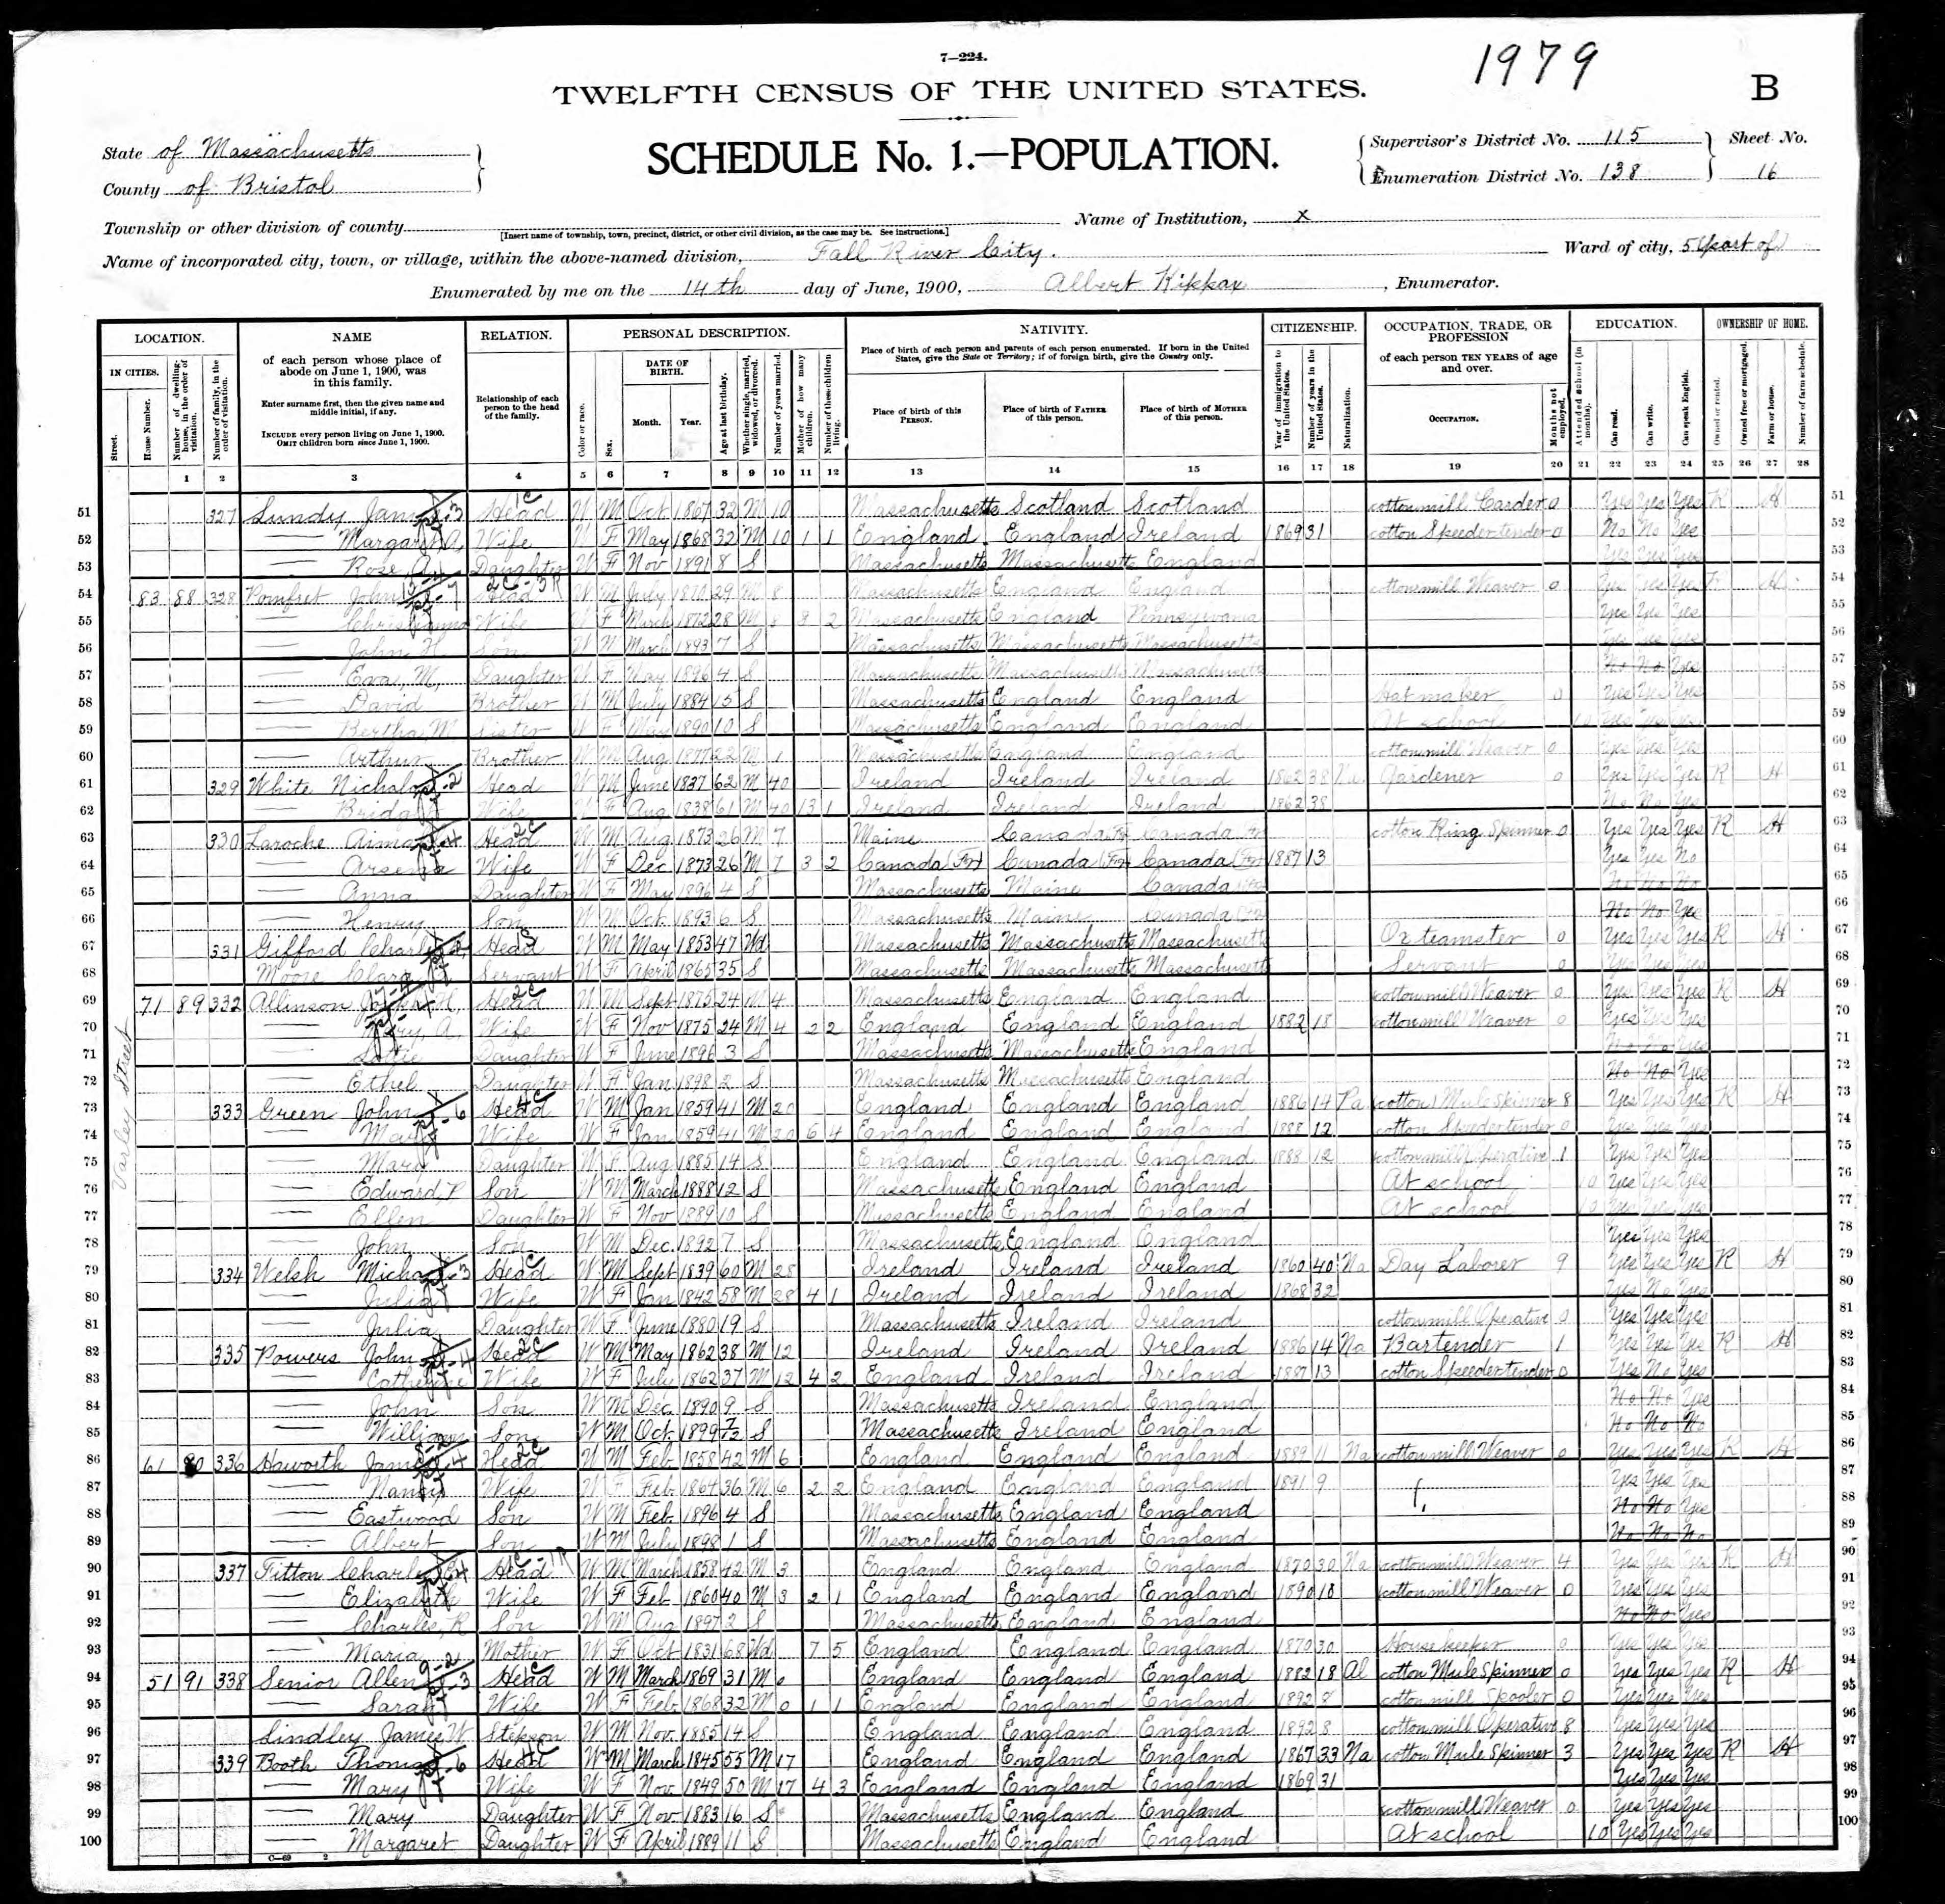 7—224.
1979
TWELFTH CENSUS OF THE UNITED STATES.
B
State of Massachusetts
County of Bristol
SCHEDULE No. 1.—POPULATION.
Supervisor's District No. 115
Enumeration District No. 138
Sheet No. 16
Township or other division of county
[Insert name of township, town, precinct, district, or other civil division, as the case may be. See instructions.]
Name of Institution, X
Name of incorporated city, town, or village, within the above-named division, Fall River City.
Ward of city, 5 (part of)
Enumerated by me on the 14th day of June, 1900, Albert Kippax, Enumerator.
LOCATION. NAME RELATION. PERSONAL DESCRIPTION. NATIVITY. CITIZENSHIP. OCCUPATION, TRADE, OR PROFESSION EDUCATION. OWNERSHIP OF HOME.
IN CITIES.
Street.
House Number.
Number of dwelling-house, in the order of visitation.
Number of family, in the order of visitation.
of each person whose place of abode on June 1, 1900, was in this family.
Enter surname first, then the given name and middle initial, if any.
INCLUDE every person living on June 1, 1900.
OMIT children born since June 1, 1900.
Relationship of each person to the head of the family.
Color or race.
Sex.
DATE OF BIRTH.
Month. Year.
Age at last birthday.
Whether single, married, widowed, or divorced.
Number of years married.
Mother of how many children.
Number of these children living.
Place of birth of each person and parents of each person enumerated. If born in the United States, give the State or Territory; if of foreign birth, give the Country only.
Place of birth of this PERSON.
Place of birth of FATHER of this person.
Place of birth of MOTHER of this person.
Year of immigration to the United States.
Number of years in the United States.
Naturalization.
of each person TEN YEARS of age and over.
OCCUPATION.
Months not employed.
Attended school (in months).
Can read.
Can write.
Can speak English.
Owned or rented.
Owned free or mortgaged.
Farm or house.
Number of farm schedule.
1 2 3 4 5 6 7 8 9 10 11 12 13 14 15 16 17 18 19 20 21 22 23 24 25 26 27 28
Varley Street
51 327 Head W M Oct 1867 32 M 10 Massachusetts Scotland Scotland cotton mill Carder 0 Yes Yes Yes R H 51
52 Margaret A. Wife W F May 1868 32 M 10 1 1 England England Ireland 1869 31 cotton Speeder tender 0 No No Yes 52
53 Rose Daughter W F Nov 1891 8 S Massachusetts Massachusetts England Yes Yes Yes 53
54 83 88 328 Pomfret John Head W M July 1870 29 M 8 Massachusetts England England cotton mill Weaver 0 Yes Yes Yes H 54
55 Wife W F March 1872 28 M 8 2 Massachusetts England Pennsylvania Yes Yes Yes 55
56 John H Son W M March 1893 7 S Massachusetts Massachusetts Massachusetts 56
57 Eva M, Daughter W F May 1896 4 S Massachusetts Massachusetts Massachusetts No No Yes 57
58 David Brother W M July 1884 15 S Massachusetts England England Hat maker 0 Yes Yes Yes 58
59 Bertha M Sister W F May 1890 10 S Massachusetts England England At school 10 59
60 Arthur Brother W M Aug 1877 22 M 1 Massachusetts England England cotton mill Weaver 0 Yes Yes Yes 60
61 329 White Nicholas Head W M June 1837 62 M 40 Ireland Ireland Ireland 1862 38 Na Gardener 0 Yes Yes Yes R H 61
62 Bridget Wife W F Aug 1838 61 M 40 13 1 Ireland Ireland Ireland 1862 38 No No Yes 62
63 330 Laroche Head W M Aug 1873 26 M 7 Maine Canada Fr Canada Fr cotton Ring Spinner 0 Yes Yes Yes R H 63
64 Wife W F Dec 1873 26 M 7 3 2 Canada (Fr) Canada (Fr) Canada (Fr) 1887 13 Yes Yes No 64
65 Anna Daughter W F May 1896 4 S Massachusetts Maine Canada No No No 65
66 Henry Son W M Oct 1893 6 S Massachusetts Maine Canada Fr No No Yes 66
67 331 Gifford Charles Head W M May 1853 47 Wd Massachusetts Massachusetts Massachusetts Ox teamster 0 Yes Yes Yes R H 67
68 Moore Clara Servant W F April 1865 35 S Massachusetts Massachusetts Massachusetts Servant 0 Yes Yes Yes 68
69 71 89 332 Allinson Head W M Sept 1875 24 M 4 Massachusetts England England cotton mill Weaver 0 Yes Yes Yes R H 69
70 Mary, A. Wife W F Nov 1875 24 M 4 2 2 England England England 1882 18 cotton mill Weaver 0 Yes Yes Yes 70
71 Daughter W F June 1896 3 S Massachusetts Massachusetts England No No Yes 71
72 Ethel Daughter W F Jan 1898 2 S Massachusetts Massachusetts England No No Yes 72
73 333 Green John Head W M Jan 1859 41 M 20 England England England 1886 14 Pa cotton Mule Spinner 8 Yes Yes Yes R H 73
74 Mary Wife W F Jan 1859 41 M 20 6 4 England England England 1888 12 cotton Speeder tender 0 Yes Yes Yes 74
75 Mary Daughter W F Aug 1885 14 S England England England 1888 12 cotton mill Operative 1 Yes Yes Yes 75
76 Edward, P Son W M March 1888 12 S Massachusetts England England At school 10 Yes Yes Yes 76
77 Ellen Daughter W F Nov 1889 10 S Massachusetts England England At school 10 Yes Yes Yes 77
78 John Son W M Dec 1892 7 S Massachusetts England England Yes Yes Yes 78
79 334 Welsh Michael Head W M Sept 1839 60 M 28 Ireland Ireland Ireland 1860 40 Na Day Laborer 9 Yes Yes Yes R H 79
80 Julia Wife W F Jan 1842 58 M 28 4 1 Ireland Ireland Ireland 1868 32 Yes No Yes 80
81 Julia Daughter W F June 1880 19 S Massachusetts Ireland Ireland cotton mill Operative 0 Yes Yes Yes 81
82 335 Powers John Head W M May 1862 38 M 12 Ireland Ireland Ireland 1886 14 Na Bartender 1 Yes Yes Yes R H 82
83 Catherine Wife W F July 1862 37 M 12 4 2 England Ireland Ireland 1887 13 cotton Speeder tender 0 Yes No Yes 83
84 John Son W M Dec 1890 9 S Massachusetts Ireland England No No Yes 84
85 William Son W M Oct 1899 7/12 S Massachusetts Ireland England No No No 85
86 61 90 336 Haworth James Head W M Feb 1858 42 M 6 England England England 1889 11 Na cotton mill Weaver 0 Yes Yes Yes R H 86
87 Nancy Wife W F Feb 1864 36 M 6 2 2 England England England 1891 9 Yes Yes Yes 87
88 Eastwood Son W M Feb 1896 4 S Massachusetts England England No No Yes 88
89 Albert Son W M July 1898 1 S Massachusetts England England No No No 89
90 337 Fitton Charles Head W M March 1858 42 M 3 England England England 1870 30 Na cotton mill Weaver 4 Yes Yes Yes R H 90
91 Elizabeth Wife W F Feb 1860 40 M 3 2 1 England England England 1890 10 cotton mill Weaver 0 Yes Yes Yes 91
92 Charles, R Son W M Aug 1897 2 S Massachusetts England England No No Yes 92
93 Maria Mother W F Oct 1831 68 Wd 7 5 England England England 1870 30 House keeper 0 Yes Yes Yes 93
94 51 91 338 Senior Allen Head W M March 1869 31 M 0 England England England 1882 18 Al cotton Mule Spinner 0 Yes Yes Yes R H 94
95 Sarah Wife W F Feb 1868 32 M 0 1 1 England England England 1892 8 cotton mill Spooler 0 Yes Yes Yes 95
96 Lindley James W Stepson W M Nov 1885 14 S England England England 1892 8 cotton mill Operative 8 Yes Yes Yes 96
97 339 Booth Thomas Head W M March 1845 55 M 17 England England England 1867 33 Na cotton Mule Spinner 3 Yes Yes Yes R H 97
98 Mary Wife W F Nov 1849 50 M 17 4 3 England England England 1869 31 Yes Yes Yes 98
99 Mary Daughter W F Nov 1883 16 S Massachusetts England England cotton mill Weaver 0 Yes Yes Yes 99
100 Margaret Daughter W F April 1889 11 S Massachusetts England England At school 10 Yes Yes Yes 100
C—69 2